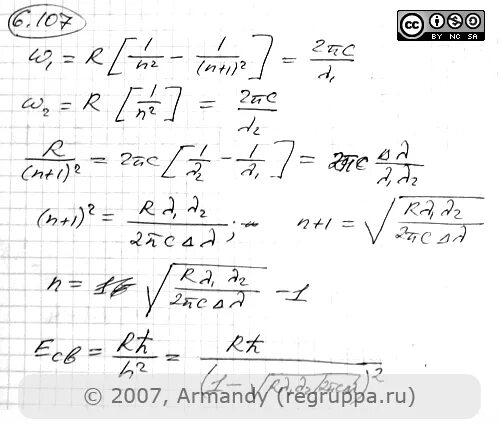 6.107
cc BY NC SA
ω₁ = R [1/n² − 1/(n+1)²] = 2πc/λ₁
ω₂ = R [1/n²] = 2πc/λ₂
R/(n+1)² = 2πc [1/λ₂ − 1/λ₁] = 2πc Δλ/λ₁λ₂
(n+1)² = Rλ₁λ₂/2πcΔλ ; n+1 = √(Rλ₁λ₂/2πcΔλ)
n = √(Rλ₁λ₂/2πcΔλ) − 1
Eсв = Rħ/n² = Rħ/(1 − √(Rλ₁λ₂/2πcΔλ))²
© 2007, Armandy (regruppa.ru)